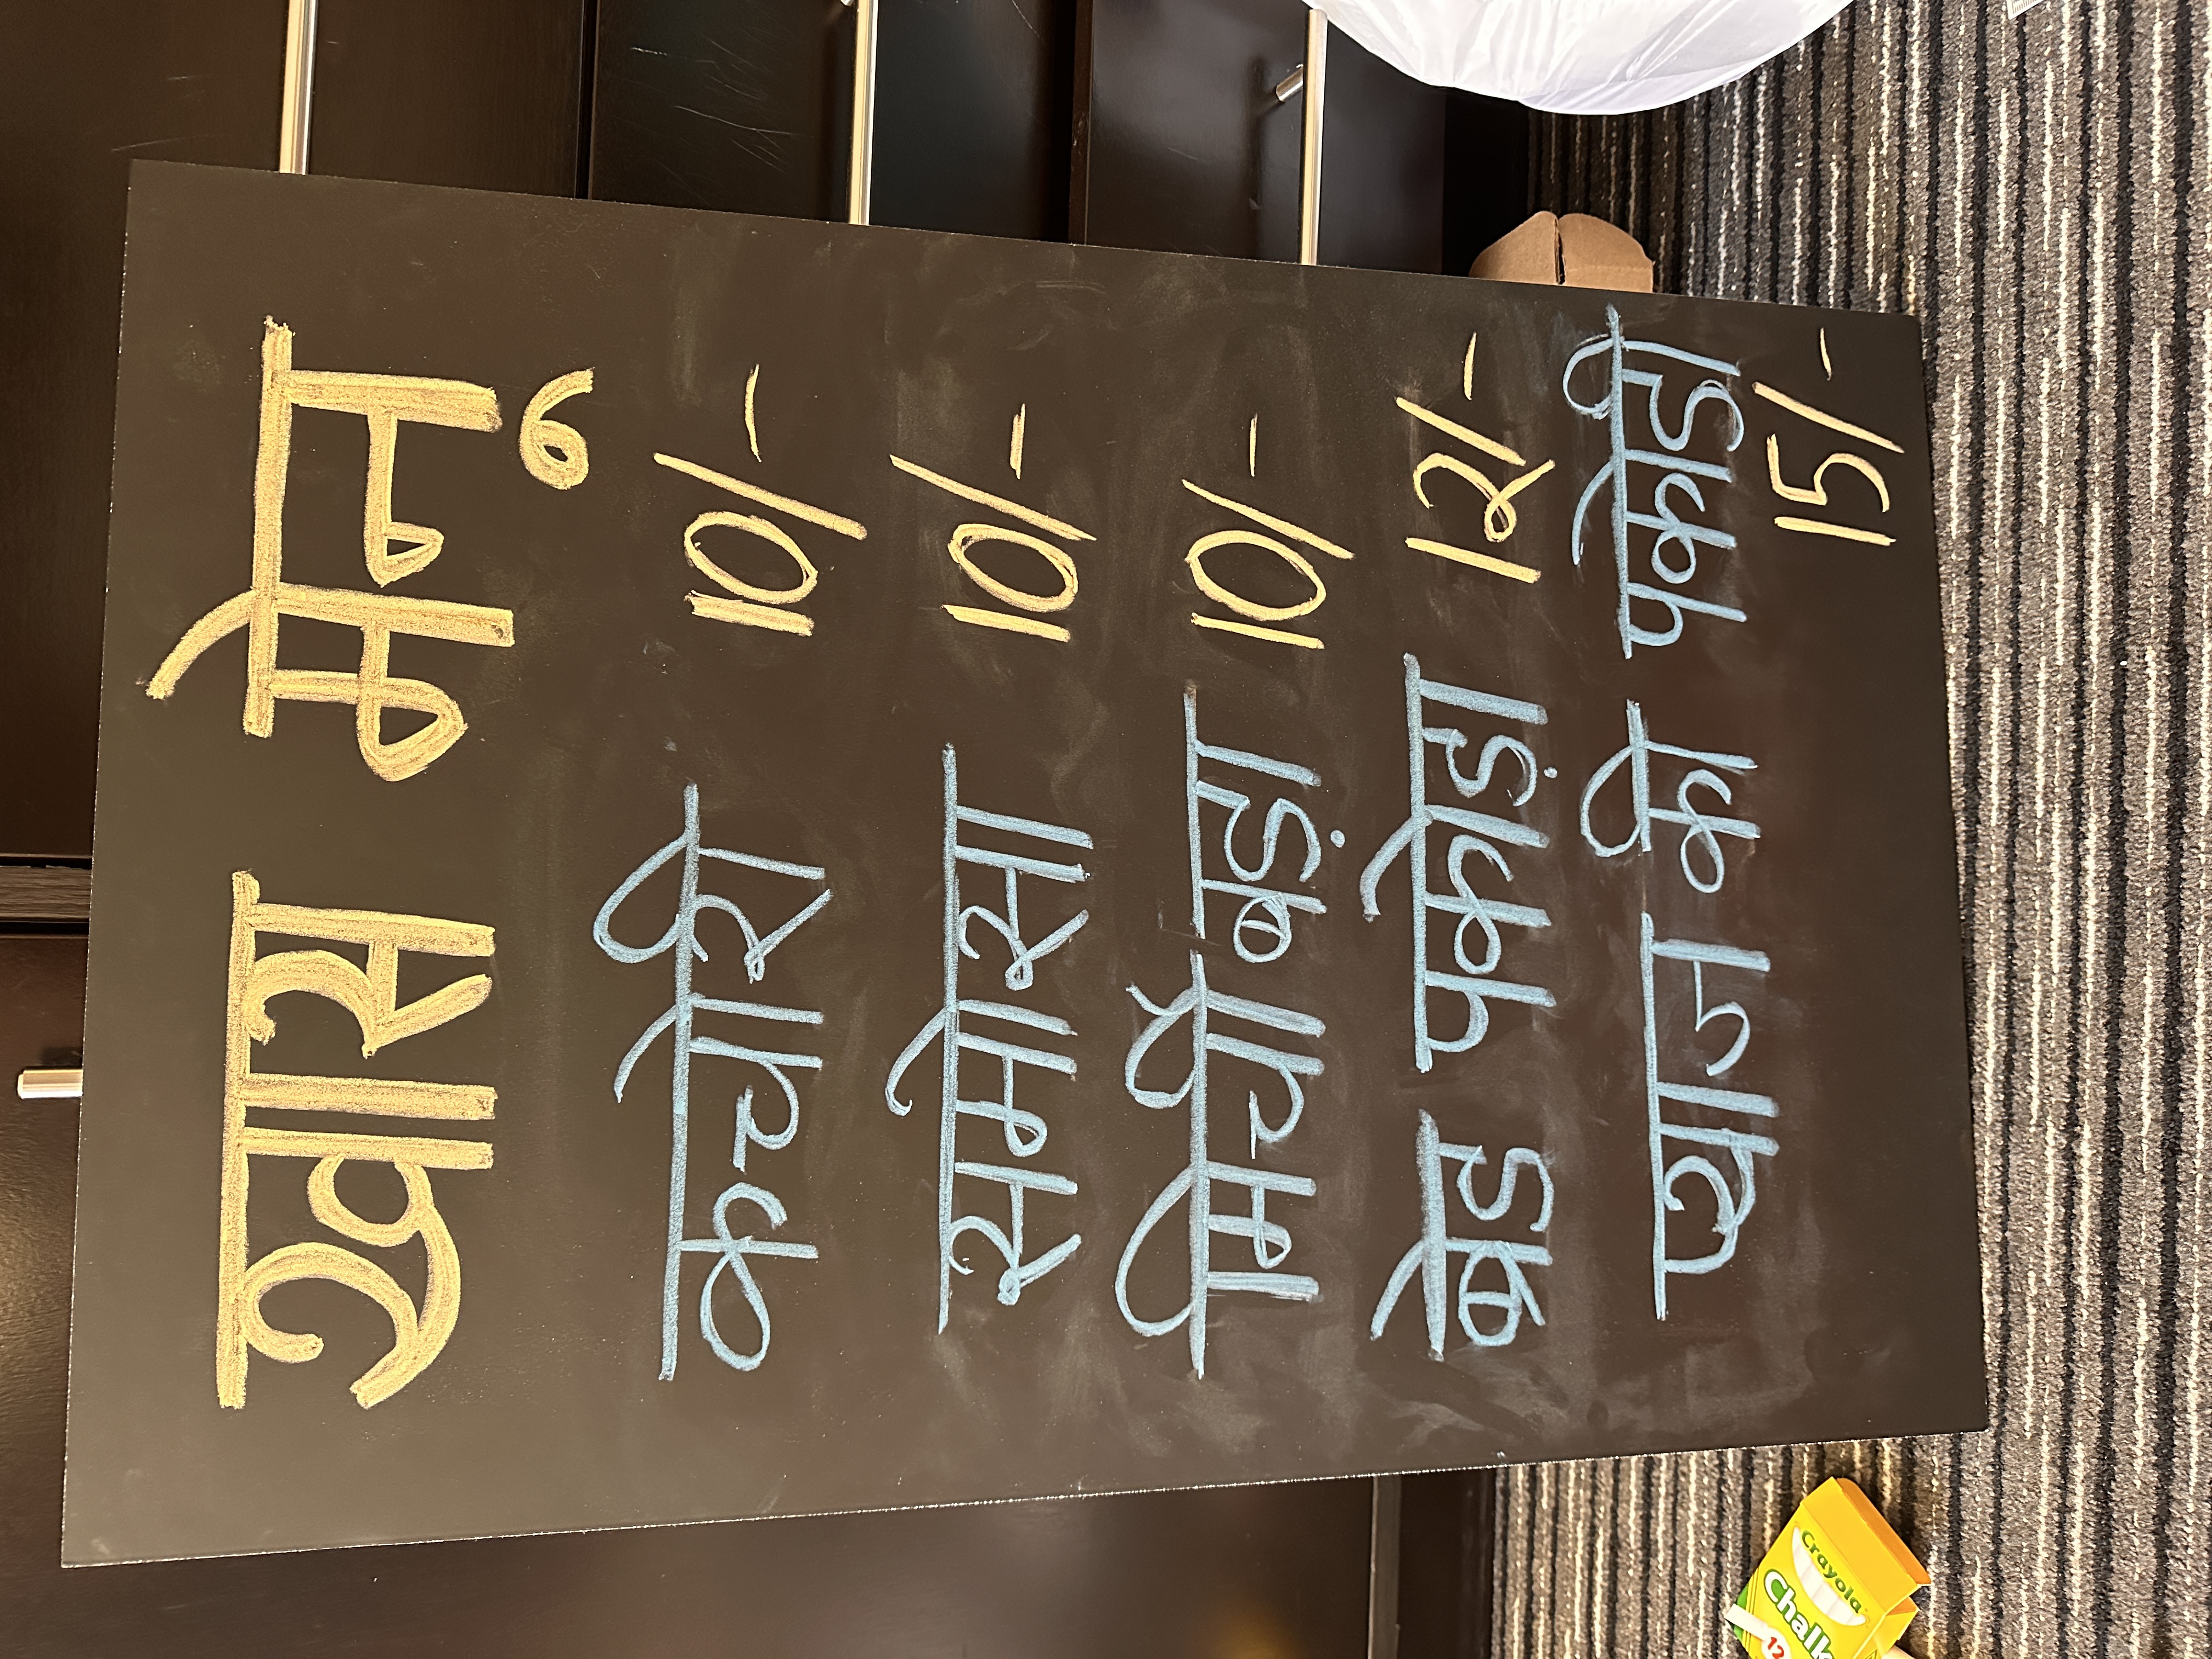 ख़ास मेनू
कचोरी 10/-
समोसा 10/-
मिर्ची बड़ा 10/-
ब्रेड पकोड़ा 12/-
प्याज की पकोडी
15/-
Crayola
Chalk
12